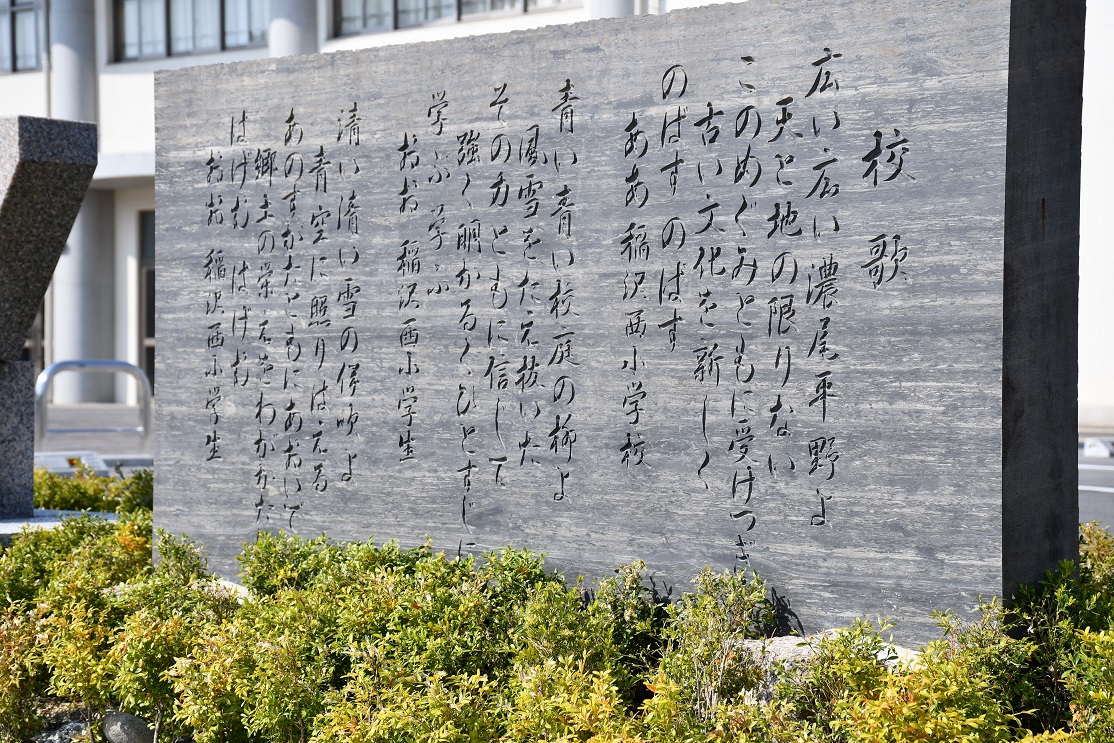 校歌
広い広い濃尾平野よ
天と地の限りない
このめぐみともに受けつぎ
古い文化を新しく
のばす のばす
ああ 稲沢西小学校
青い青い校庭の柳よ
風雪をたえ抜いた
その力ともに信じて
強く明かるくひとすじに
学ぶ 学ぶ
おお 稲沢西小学生
清い清い雪の伊吹よ
青空に照りはえる
あのすがたともにあおいで
郷土の栄えをわがかた
はげむ はげむ
おお 稲沢西小学生